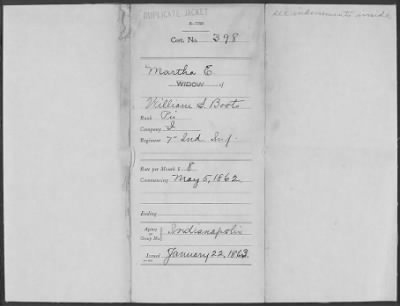 DUPLICATE JACKET
all indorsements inside
Cert. No. 398
Martha E.
WIDOW
William S. Boots
Rank Pri
Company I
Regiment 7" Ind. Inf.
Rate per Month $ 8
Commencing May 5, 1862
Ending
Agency Indianapolis
Issued January 22, 1863.